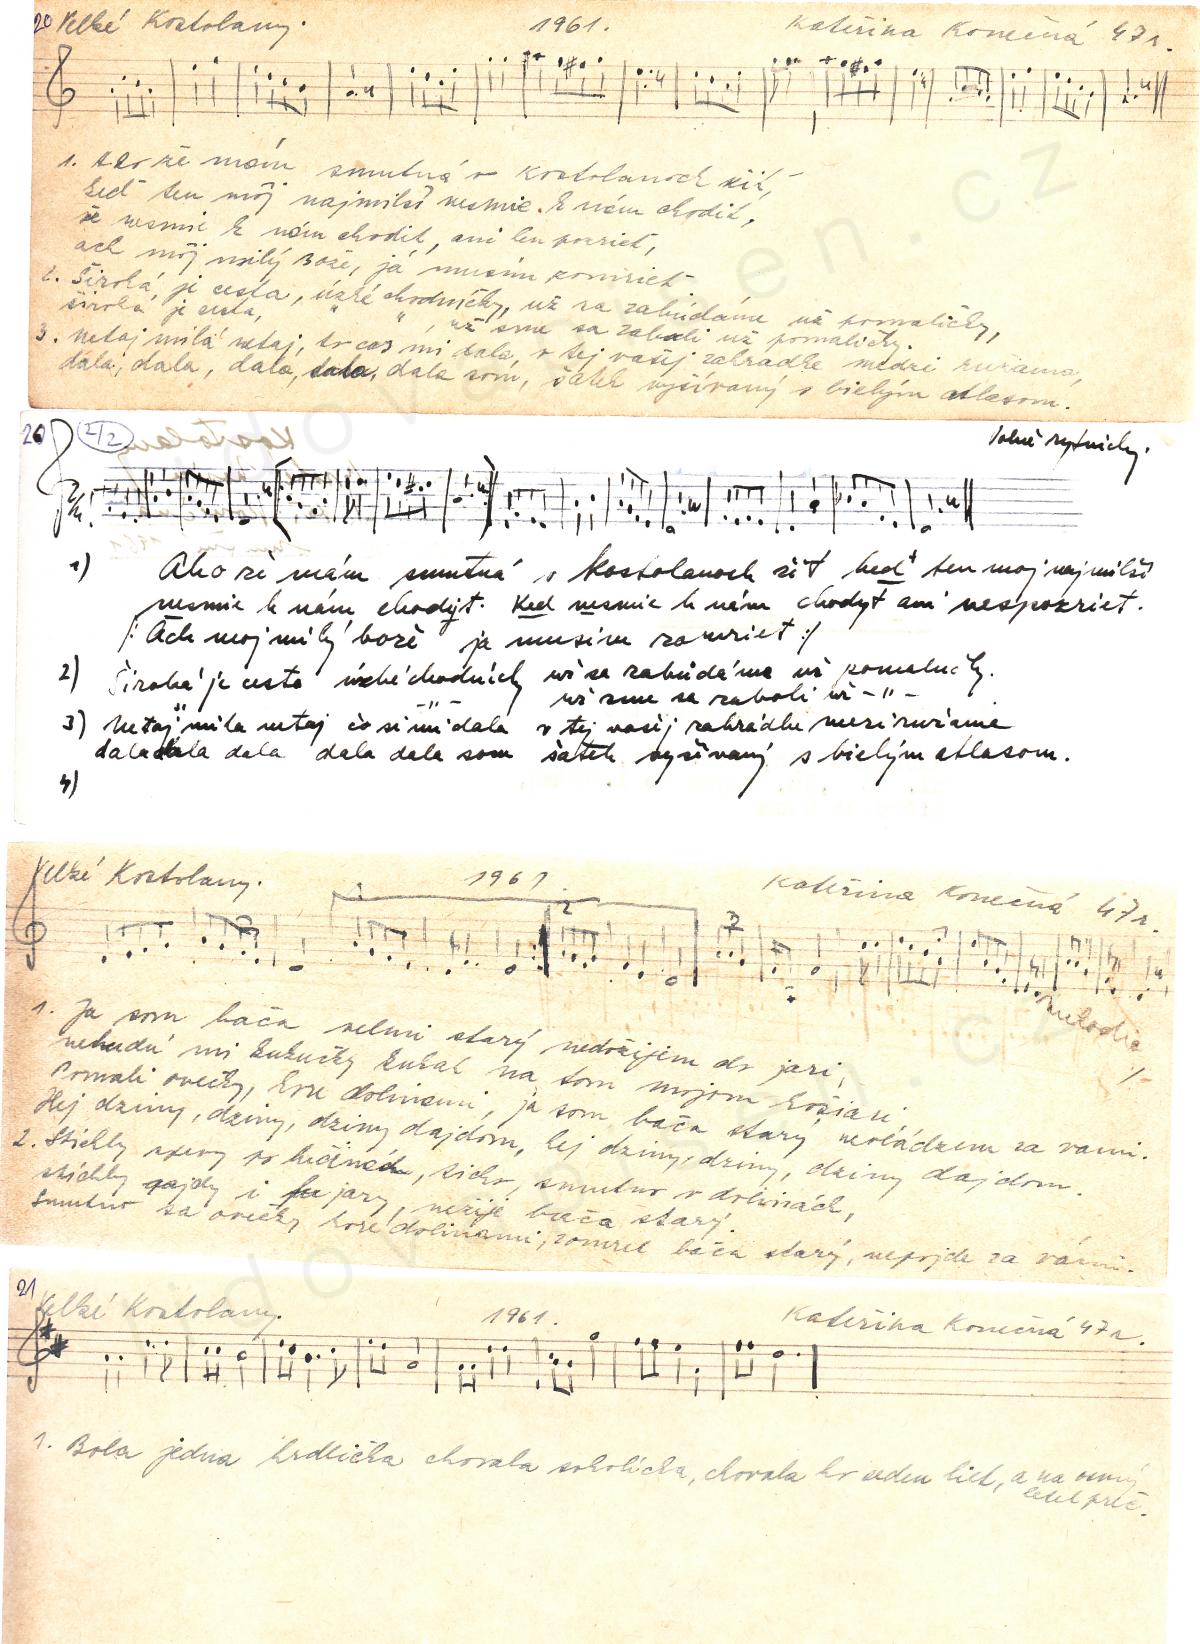 20 Velké Kostolany. 1961. Kateřina Konečná 47 r.
1. Ako že mám smutná v Kostolanoch žiť,
keď ten môj najmilší nesmie k nám chodiť,
že nesmie k nám chodiť, ani len pozrieť,
ach môj milý Bože, já musím zomrieť
2. Široká je cesta, úzké chodníčky, už sa zabúdáme už pomaličky,
široká je cesta, " " , už sme sa zabuli už pomaličky.
3. Netaj milá netaj, čo cos mi dala, v tej vašej zahradke medzi ružama,
dala, dala, dala, dala, dala som, šatek vyšívaný s bielým atlasom.
20 2/2 Volně rytmicky.
1) Ako že mám smutná v Kostolanoch žiť keď ten moj najmilší
nesmie k nám chodyt. Ked nesmie k nám chodyt ani nespozriet.
/: Ach moj milý bože ja musím zomriet :/
2) Široká je cesta úzké chodnícky už sa zabúdáme už pomalučky.
-"- už sme sa zaboli už -"-
3) Netaj mila netaj čo si mi dala v tej vašej zahrádke mezi ružama
dala dala dala dala dala som šatek vyšívaný s bielým atlasom.
4)
Velké Kostolany. 1961 Kateřina Konečná 47 r.
1. 2
3
melodie
1. Ja som bača velmi starý nedožijem do jari,
nebudú mi kukučky kukať na tom mojom košiari
Pomali ovečky, hore dolinami, ja som bača starý nevládzem za vami.
Hej dziny, dziny, dziny dajdom, hej dziny, dziny, dziny dajdom.
2. Stíchly spevy po hečinách, ticho, smutno v dolinách,
stíchly gajdy i fujary, nežije bača starý.
Smutno sa ovečky hore dolinami, zomrel bača starý, nepojde za vámi.
21 Velké Kostolany. 1961. Kateřina Konečná 47 r.
1. Bola jedna hrdlička chovala sokolícka, chovala ho seden liet, a na osmý
letel preč.